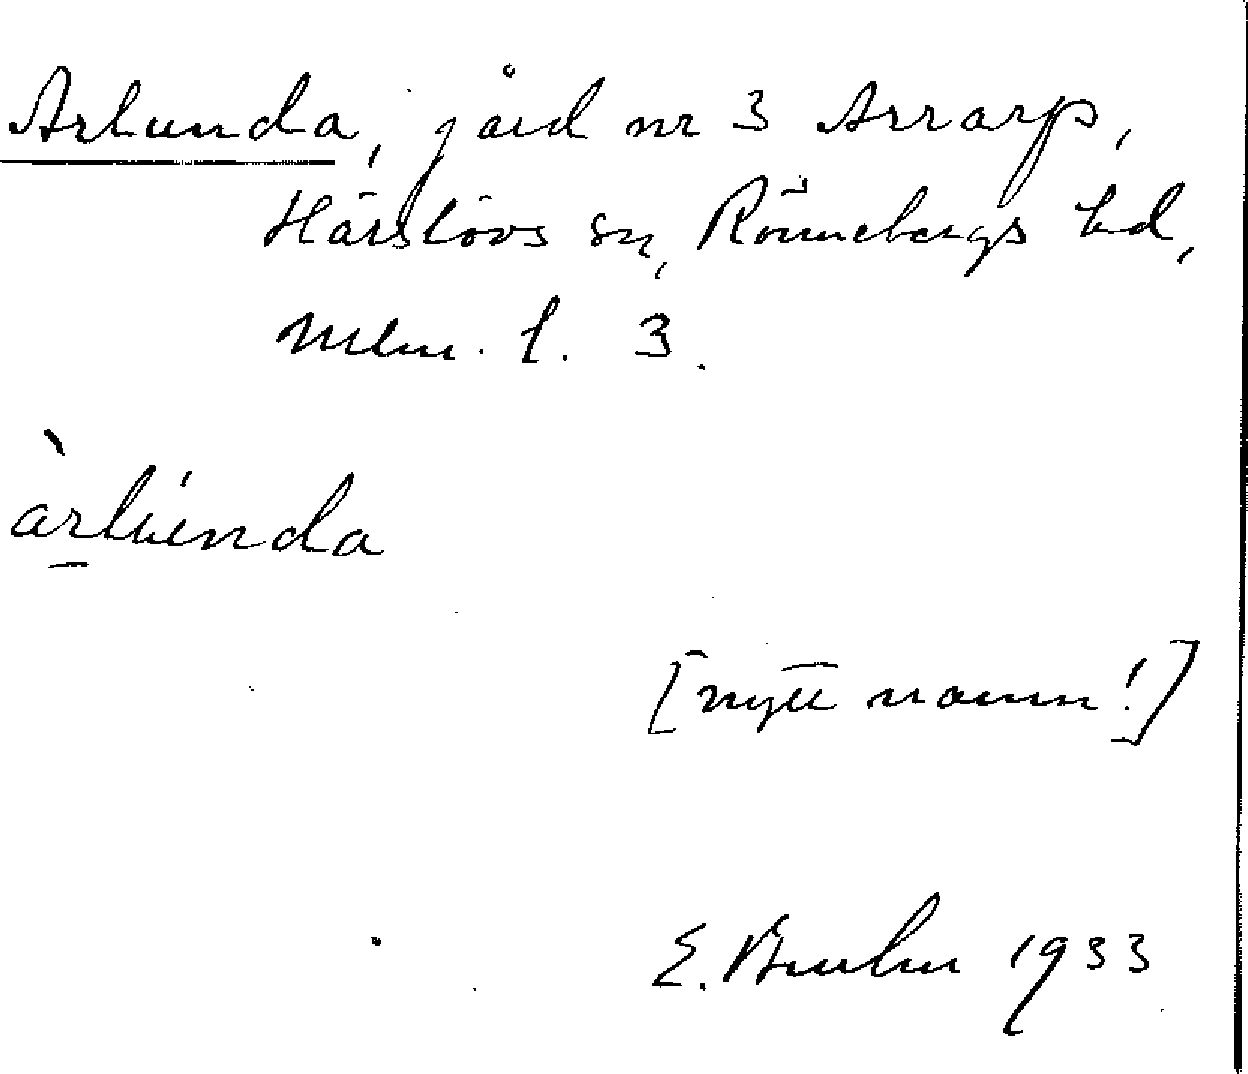 Arlunda, gård nr 3 Arrarp,
Härslövs sn, Rönnebergs hd,
Mlm. l. 3.
àrlúnda
[nytt namn!]
E. Bruhn 1933